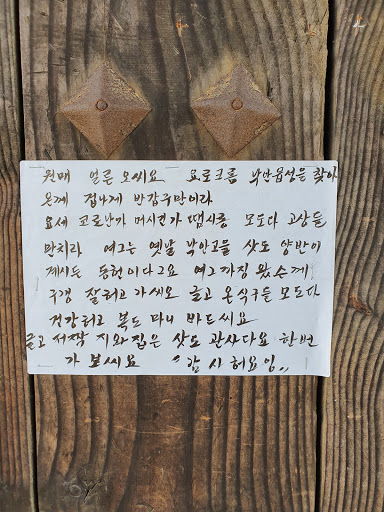 워매 얼른 오씨요 요로크롬 낙안읍성을 찾아
온게 겁나게 반갑구만이라
요새 코로난가 머시건가 땜시롱 모도다 고상들
만치라 여그는 옛날 낙안고을 삿도 양반이
계시는 동헌이다그요 여그까징 왔슨게
구갱 잘허고 가씨오 글고 온식구들 모도다
건강허고 복도 마니 바드씨요
글고 서짝 지와집은 삿도 관사다요 한번
가 보씨요 "감시허요잉"